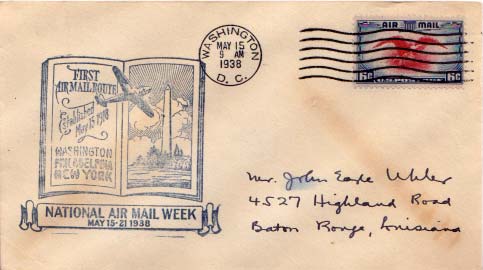 FIRST
AIR MAIL ROUTE
Established
May 15, 1918
WASHINGTON
PHILADELPHIA
NEW YORK
NATIONAL AIR MAIL WEEK
MAY 15-21 1938
WASHINGTON
MAY 15
9 AM
1938
D. C.
AIR MAIL
6c U.S. POSTAGE 6c
Mr. John Earle Uhler
4527 Highland Road
Baton Rouge, Louisiana